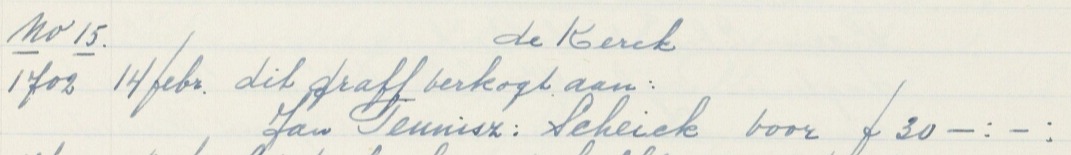 No 15. de Kerck
1702 14 febr. dit graff verkogt aan:
Jan Teunisz: Scheick voor f 30 —:—: